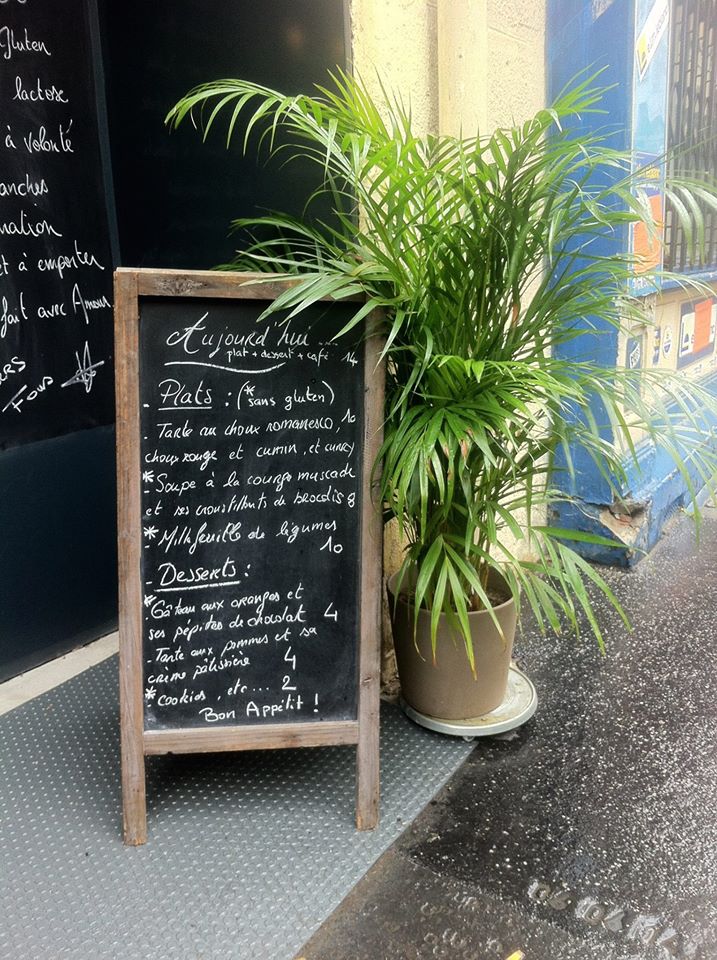 Gluten
lactose
à volonté
anches
mation
et à emporter
fait avec Amour
Aujourd'hui ...
plat + dessert + café 14
- Plats : (* sans gluten)
- Tarte au choux romanesco, 10
choux rouge et cumin, et curry
* - Soupe à la courge muscade
et ses croustillants de brocolis 8
* - Millefeuille de légumes
10
- Desserts :
* - Gâteau aux oranges et
ses pépites de chocolat 4
- Tarte aux pommes et sa
crème pâtissière 4
* - cookies, etc... 2
Bon Appétit !